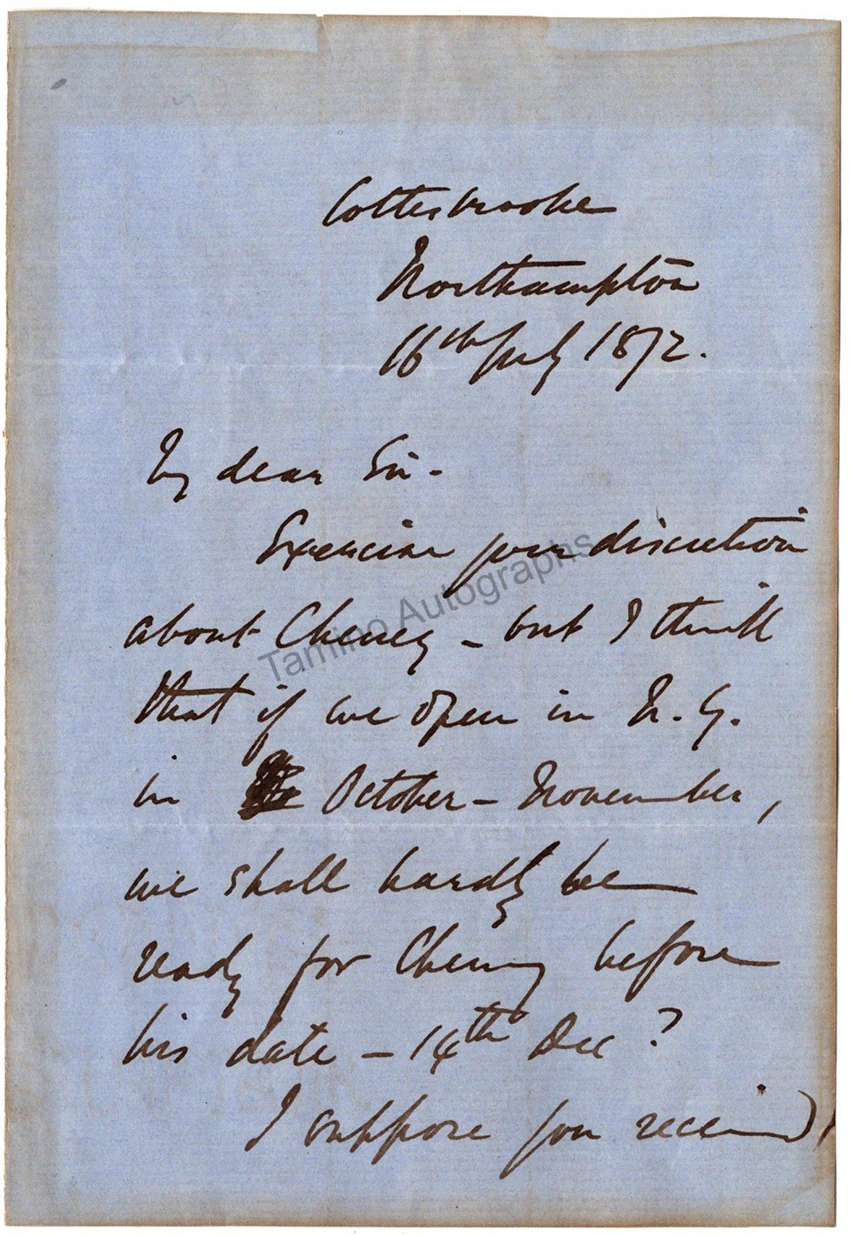 Cottesbrooke
Northampton
16th July 1872.
My dear Sir -
Exercise your discretion
about Cheney - but I think
that if we open in N. Y.
in October - November,
we shall hardly be
ready for Cheney before
his date - 14th Dec ?
I suppose you received
Tamino Autographs